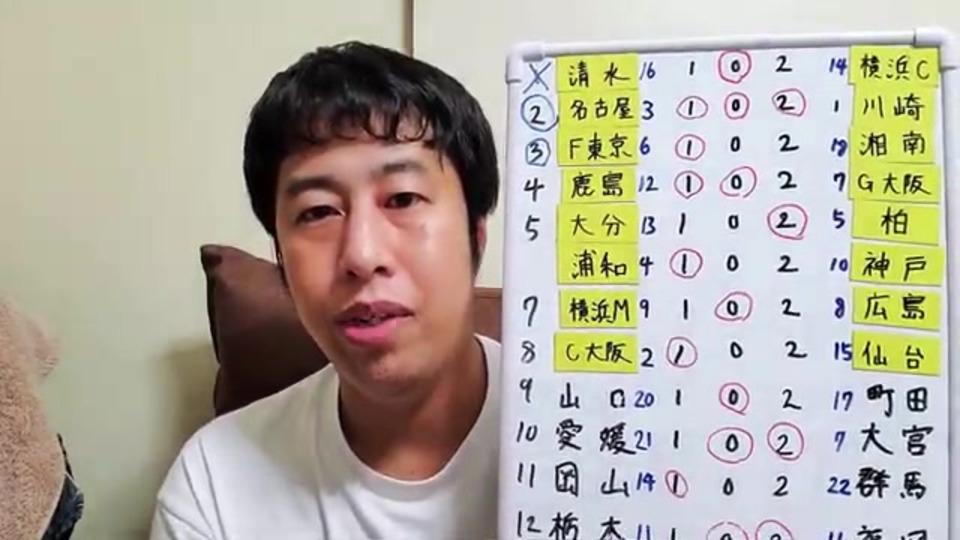 X 清水 16 1 0 2 14 横浜C
2 名古屋 3 1 0 2 1 川崎
3 F東京 6 1 0 2 18 湘南
4 鹿島 12 1 0 2 7 G大阪
5 大分 13 1 0 2 5 柏
浦和 4 1 0 2 10 神戸
7 横浜M 9 1 0 2 8 広島
8 C大阪 2 1 0 2 15 仙台
9 山口 20 1 0 2 17 町田
10 愛媛 21 1 0 2 7 大宮
11 岡山 14 1 0 2 22 群馬
12 栃木 11 1 0 2